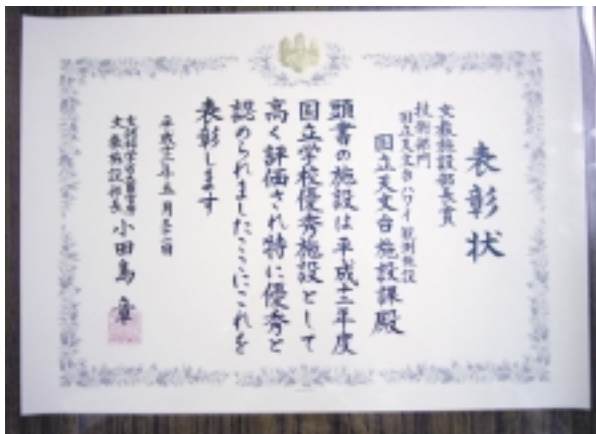 表彰状
文教施設部長賞
技術部門
国立天文台ハワイ観測施設
国立天文台施設課殿
頭書の施設は平成十二年度
国立学校優秀施設として
高く評価され特に優秀と
認められましたここにこれを
表彰します
平成十三年五月
文部科学省大臣官房
文教施設部長 小田島 章